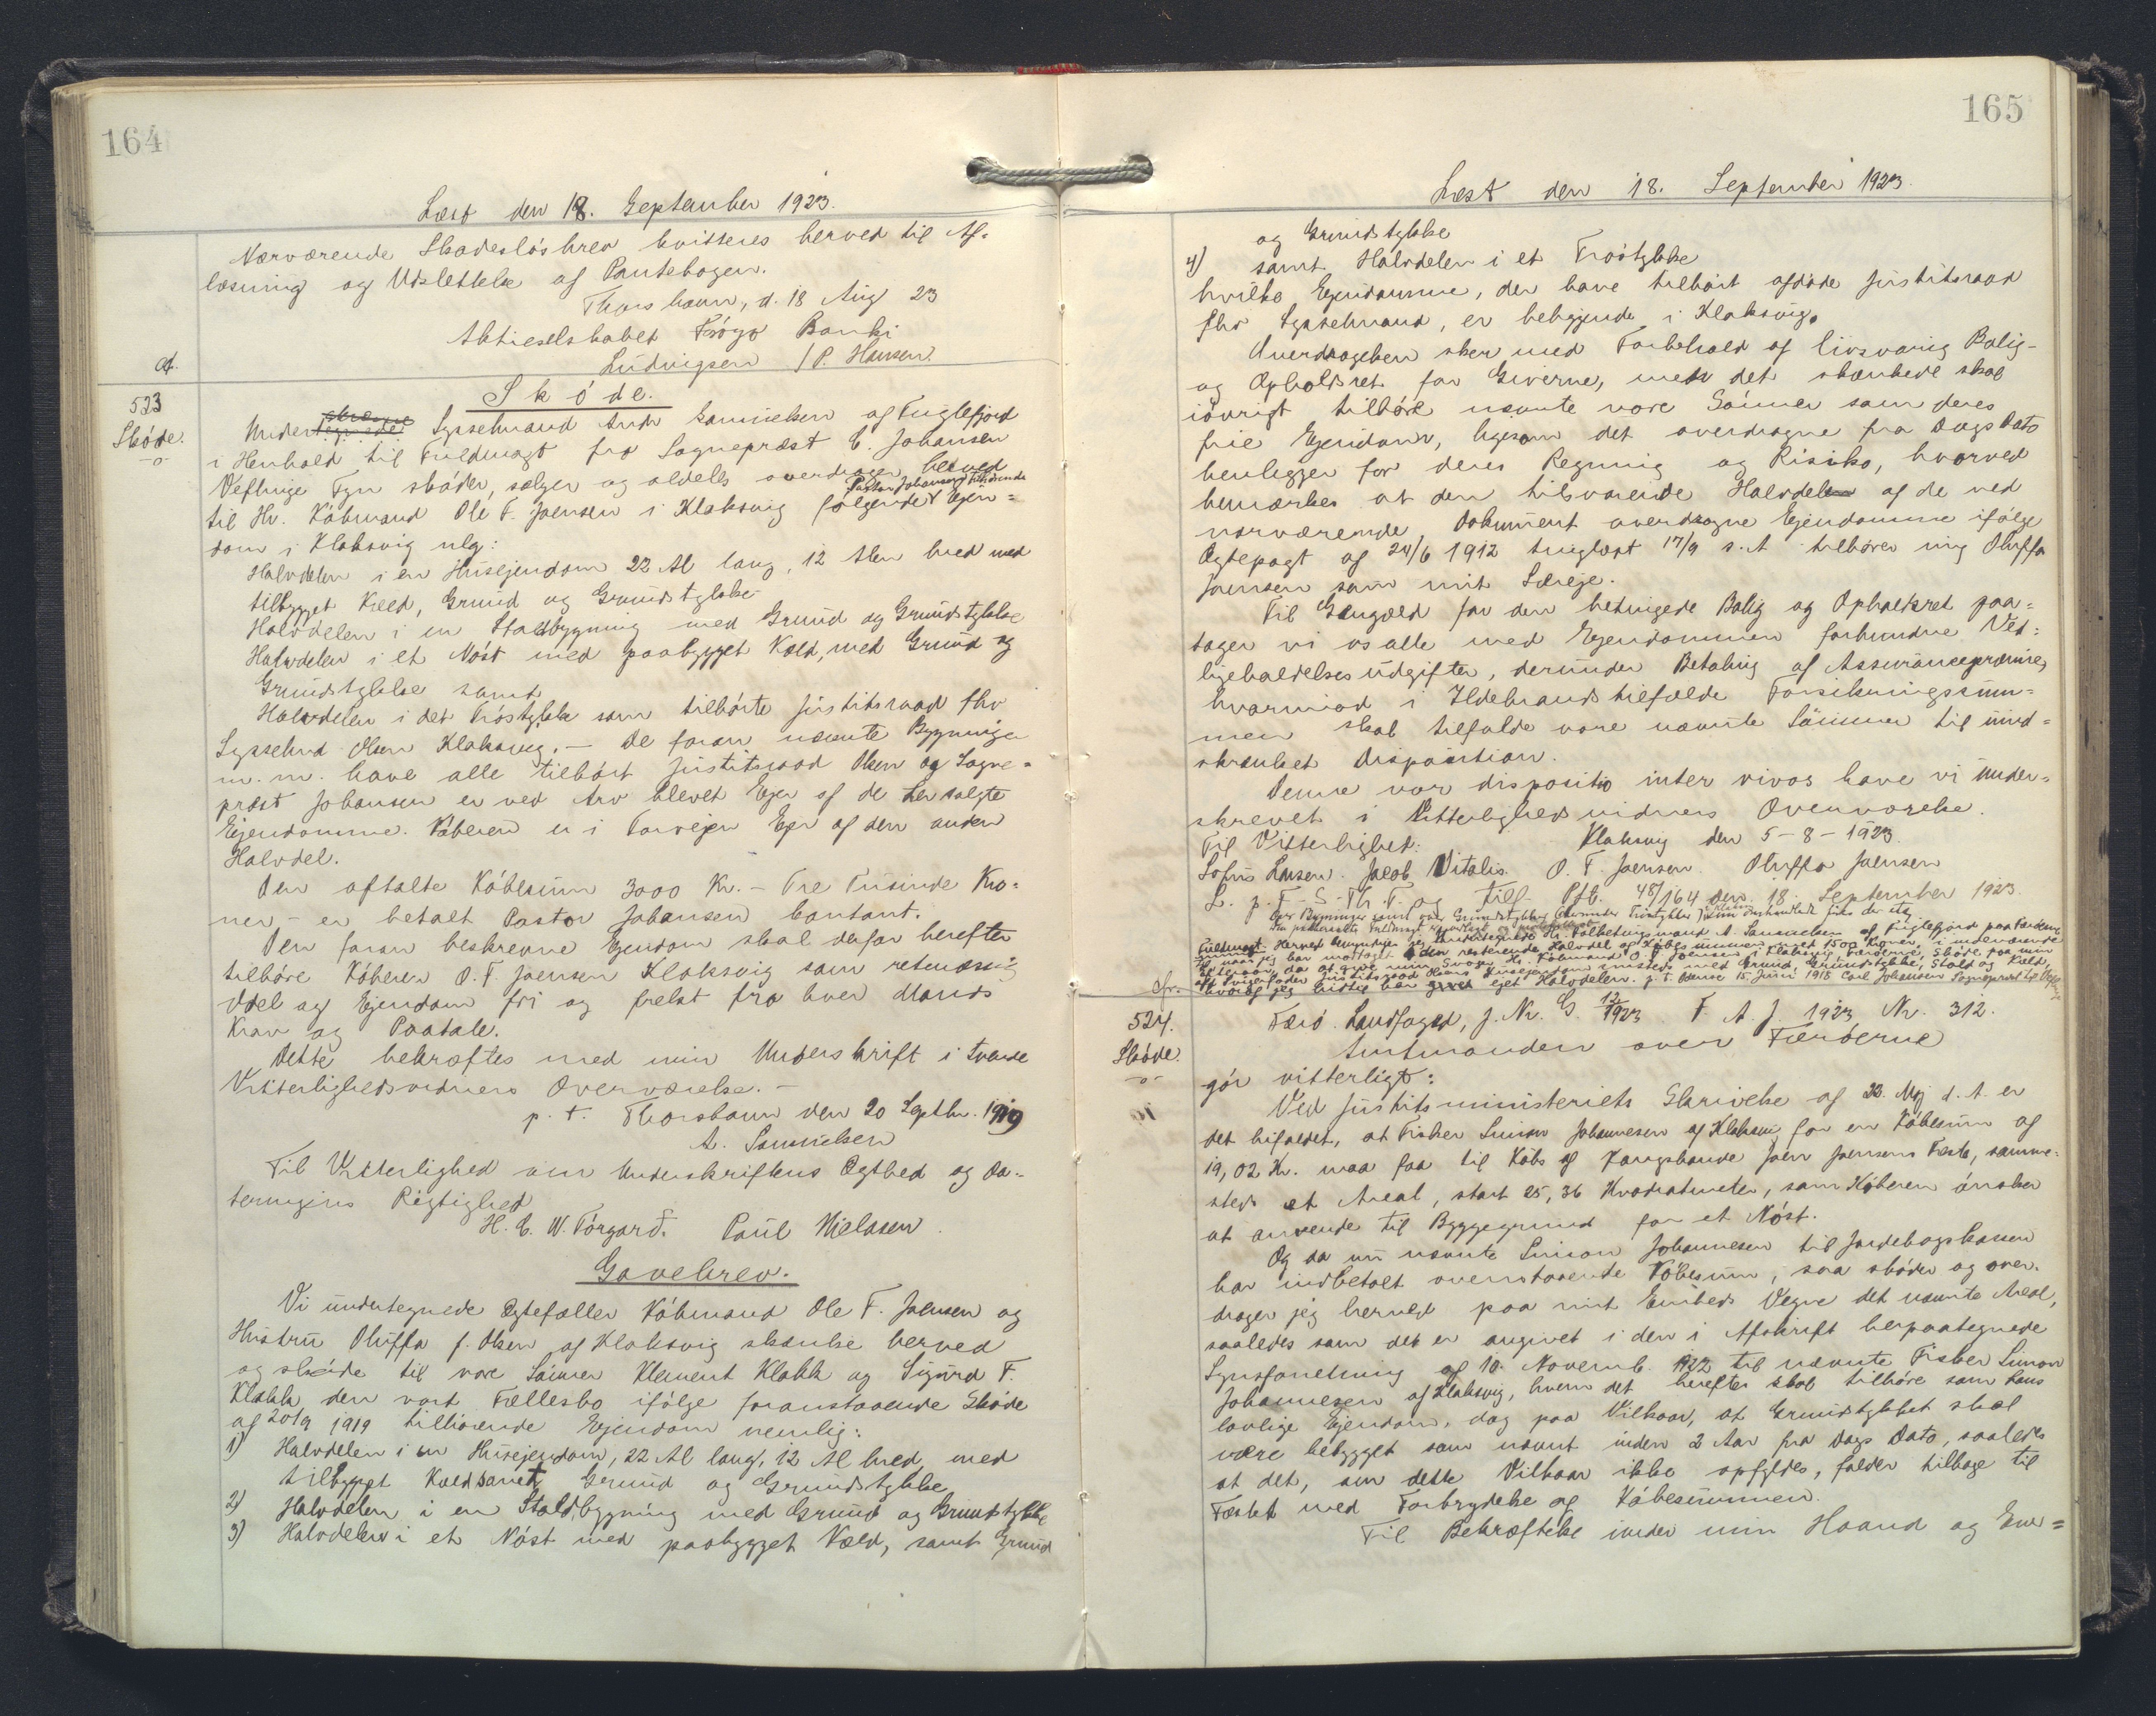 164
Læst den 18. September 1923.
Nærværende Skadesløsbrev kvitteres herved til Af-
læsning og Udslettelse af Pantebogen.
Thorshavn, d. 18 Aug 23
Aktieselskabet Føroya Banki
Ludvigsen / P. Hansen.
af.
523
Skøde.
-o-
Skøde.
Under Sysselmand Andr Samuelsen af Fuglefjord
i Henhold til Fuldmagt fra Sognepræst C. Johansen
Veflinge Fyn skøder, sælger og aldeles overdrager herved
Pastor Johansen tilhørende
til Hr. Købmand Ole F. Joensen i Klaksvig følgende Ejen=
dom i Klaksvig nlg:
Halvdelen i en Husejendom 22 Al lang, 12 Alen bred med
tilbygget Kæld, Grund og Grundstykke
Halvdelen i en Staldbygning med Grund og Grundstykke
Halvdelen i et Nøst med paabygget Kæld, med Grund og
Grundstykke samt
Halvdelen i det Trøstykke som tilhørte Justitsraad fhv
Sysselmd Olsen Klaksvig. — De foran nævnte Bygninger
m.m. have alle tilhørt Justitsraad Olsen og Sogne=
præst Johansen er ved Arv blevet Ejer af de her solgte
Ejendomme. Køberen er i Forvejen Ejer af den anden
Halvdel.
Den aftalte Købesum 3000 Kr. - Tre Tusinde Kro=
ner - er betalt Pastor Johansen kontant.
Den foran beskrevne Ejendom skal derfor herefter
tilhøre Køberen O. F. Joensen Klaksvig som retmæssig
Odel og Ejendom fri og frelst fra hver Mands
Krav og Paatale.
Dette bekræftes med min Underskrift i tvende
Vitterlighedsvidners Overværelse. —
p. t. Thorshavn den 20 Septbr. 1919
A. Samuelsen
Til Vitterlighed om Underskriftens Ægthed og Da-
teringens Rigtighed
H. C. W. Tórgarð. Paul Nielsen.
Gavebrev.
Vi undertegnede Ægtefæller Købmand Ole F. Joensen og
Hustru Oluffa f. Olsen af Klaksvig skænke herved
og skøde til vore Sønner Klement Klakk og Sigurd F.
Klakk den vort Fællesbo ifølge foranstaaende Skøde
af 20/9 1919 tilhørende Ejendom nemlig:
1) Halvdelen i en Husejendom, 22 Al lang, 12 Al bred, med
tilbygget Kæld samt Grund og Grundstykke
2) Halvdelen i en Staldbygning med Grund og Grundstykke
3) Halvdelen i et Nøst med paabygget Kæld, samt Grund
165
Læst den 18. September 1923.
og Grundstykke
4) samt Halvdelen i et Trøstykke
hvilke Ejendomme, der have tilhørt afdøde Justitsraad
fhv Sysselmand, er beliggende i Klaksvig.
Overdragelsen sker med Forbehold af livsvarig Bolig-
og Opholdsret for Giverne, men det skænkede skal
iøvrigt tilhøre nævnte vore Sønner som deres
frie Ejendom, ligesom det overdragne fra Dags Dato
henligger for deres Regning og Risiko, hvorved
bemærkes at den tilsvarende Halvdel af de ved
nærværende Dokument overdragne Ejendomme ifølge
Ægtepagt af 24/6 1912 tinglæst 17/9 s. A. tilhører mig Oluffa
Joensen som mit Særeje.
Til Gengæld for den betingede Bolig og Opholdsret paa=
tager vi os alle med Ejendommen forbundne Ved=
ligeholdelsesudgifter, derunder Betaling af Assurancepræmie,
hvorimod i Ildebrandstilfælde Forsikringssum=
men skal tilfalde vore nævnte Sønner til uind=
skrænket Disposition.
Denne vor dispositio inter vivos have vi under=
skrevet i Vitterlighedsvidners Overværelse.
Til Vitterlighed: Klaksvig den 5-8-1923
Sofus Olsen. Jacob Vitalis. O. F. Joensen. Oluffa Joensen
L. p. F - S - Th. T. og Tilf. Pft. 48/164 den 18. September 1923.
Fuldmagt. Herved bemyndiger jeg undertegnede Hr. Folketingsmand A. Samuelsen af Fuglefjord paa Færøerne
til naar jeg har modtaget den resterende Halvdel af Købesummen med 1500 Kroner, i indeværende
Efteraar, da at give min Svoger Hr. Købmand O. F. Joensen i Klaksvig, Færøerne, Skøde paa min
afd Svigerfader Justitsraad Olsens Husejendom smsteds med Grund Grundstykke, Stald og Kæld,
hvoraf jeg hidtil har ejet Halvdelen. p. t. Odense 15 Juni 1918 Carl Johansen Sognepræst til Veflinge
524.
Skøde.
-o-
Færø. Landfoged, J. Nr. G. 12/1923. F. A. J. 1923 Nr. 312.
Amtmanden over Færøerne
gør vitterligt:
Ved Justitsministeriets Skrivelse af 23. Maj d. A. er
det bifaldet, at Fisker Simon Johannesen af Klaksvig for en Købesum af
19,02 Kr. maa faa til Købs af Kongsbonde Joen Joensens Fæste, samme-
steds et Areal, stort 25,36 Kvadratmeter, som Køberen ønsker
at anvende til Byggegrund for et Nøst.
Og da nu nævnte Simon Johannesen til Jordebogskassen
har indbetalt ovenstaaende Købesum, saa skøder og over-
drager jeg herved paa mit Embeds Vegne det nævnte Areal,
saaledes som det er angivet i den i Afskrift herpaategnede
Synsforretning af 10. Novemb. 1922 til nævnte Fisker Simon
Johannesen af Klaksvig, hvem det herefter skal tilhøre som hans
lovlige Ejendom, dog paa Vilkaar, at Grundstykket skal
være bebygget som nævnt inden 2 Aar fra Dags Dato, saaledes
at det, om dette Vilkaar ikke opfyldes, falder tilbage til
Fæstet med Fortrydelse af Købesummen.
Til Bekræftelse under min Haand og Em=